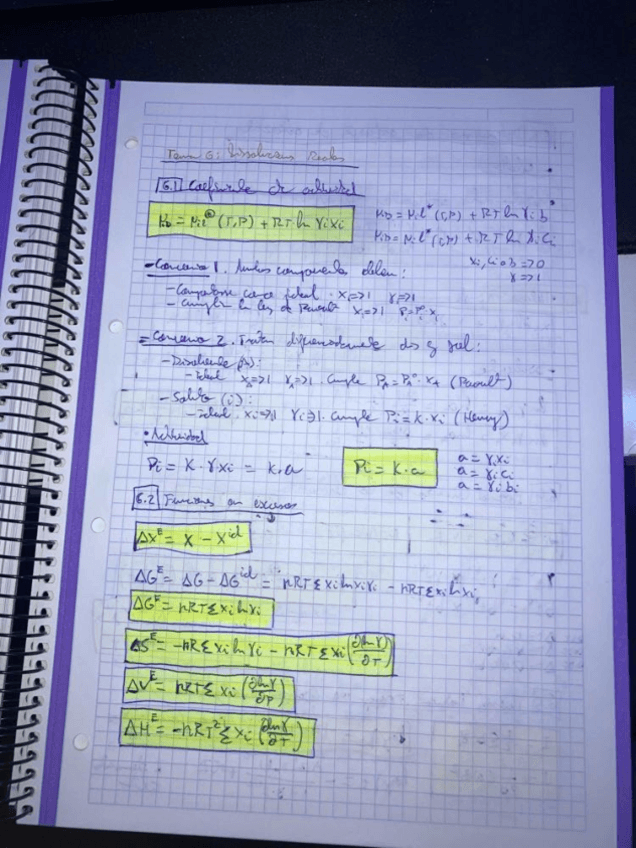 Tema 6: Disoluciones Reales
6.1 Coeficiente de actividad
μD = μil^⊗ (T,P) + RT ln γi xi
μiD = μil* (T,P) + RT ln γi b
μiD = μil* (T,P) + RT ln γi Ci
xi, Ci o b => 0
γ => 1
- Convenio 1. Ambos componentes deben:
- Comportarse como ideal xi => 1 γ => 1
- Cumplir la ley de Raoult xi => 1 Pi = Pi° xi
- Convenio 2. Tratan diferentemente dte y sol:
- Disolvente (A):
- Ideal xA => 1 γA => 1 cumple PA = PA° · xA (Raoult)
- Soluto (i):
- ideal xi => 1 γi => 1 cumple Pi = k · xi (Henry)
• Actividad
Pi = K · γ xi = K · a
Pi = K · a
a = γi xi
a = γi Ci
a = γi bi
6.2 Funciones en exceso
ΔX^E = X - X^id
ΔG^E = ΔG - ΔG^id = nRT Σ xi ln xi γi - nRT Σ xi ln xi
ΔG^E = nRT Σ xi ln γi
ΔS^E = -nR Σ xi ln γi - nRT Σ xi (∂lnγ/∂T)
ΔV^E = nRT Σ xi (∂lnγ/∂P)
ΔH^E = -nRT² Σ xi (∂lnγ/∂T)